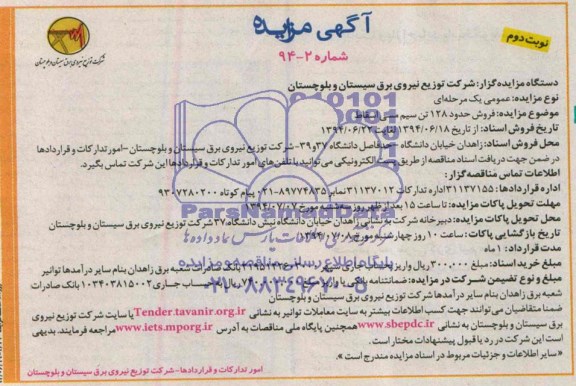 آگهی مزایده
نوبت دوم
شماره ۲-۹۴
شرکت توزیع نیروی برق سیستان و بلوچستان
دستگاه مزایده گزار: شرکت توزیع نیروی برق سیستان و بلوچستان
نوع مزایده: عمومی یک مرحله‌ای
موضوع مزایده: فروش حدود ۱۲۸ تن سیم مسی اسقاط
تاریخ فروش اسناد: از تاریخ ۱۳۹۴/۰۶/۱۸ لغایت ۱۳۹۴/۰۶/۲۲
محل فروش اسناد: زاهدان خیابان دانشگاه -حدفاصل دانشگاه ۳۷و۳۹- شرکت توزیع نیروی برق سیستان و بلوچستان -امور تدارکات و قراردادها
در ضمن جهت دریافت اسناد مناقصه از طریق پست الکترونیکی می‌توانید با تلفن‌های امور تدارکات و قراردادها این شرکت تماس بگیرد.
اطلاعات تماس مناقصه گزار:
اداره قراردادها: ۳۱۱۳۷۱۵۵ اداره تدارکات ۳۱۱۳۷۰۱۲ نمابر ۸۹۷۷۴۸۳۵-۰۲۱ پیام کوتاه ۹۳۰۷۲۸۰۲۰۰
مهلت تحویل پاکات مزایده: تا ساعت ۱۵ بعد از ظهر روز سه شنبه مورخ ۱۳۹۴/۰۷/۰۷
محل تحویل پاکات مزایده: دبیرخانه شرکت به نشانی زاهدان خیابان دانشگاه نبش دانشگاه ۳۷ شرکت توزیع نیروی برق سیستان و بلوچستان
تاریخ بازگشایی پاکات: ساعت ۱۰ روز چهارشنبه مورخ ۱۳۹۴/۰۷/۰۸
مدت قرارداد: ۱ ماه
مبلغ خرید اسناد: ۳۰۰.۰۰۰ ریال واریز به حساب جاری سپهر بانک صادرات شعبه برق زاهدان بنام سایر درآمدها توانیر
مبلغ و نوع تضمین شرکت در مزایده: ضمانتنامه بانکی یا واریز مبلغ ریال به حساب جاری ۱۰۳۴۰۳۸۱۵۰۰۲ بانک صادرات
شعبه برق زاهدان بنام سایر درآمدها شرکت توزیع نیروی برق سیستان و بلوچستان
ضمنا متقاضیان می‌توانند جهت کسب اطلاعات بیشتر به سایت معاملات توانیر به نشانی Tender.tavanir.org.ir یا سایت شرکت توزیع نیروی
برق سیستان و بلوچستان به نشانی www.sbepdc.ir همچنین پایگاه ملی مناقصات به آدرس www.iets.mporg.ir مراجعه فرمایند. بدیهی
است این شرکت در رد یا قبول پیشنهادات مختار است.
«سایر اطلاعات و جزئیات مربوط در اسناد مزایده مندرج است.»
امور تدارکات و قراردادها- شرکت توزیع نیروی برق سیستان و بلوچستان
ParsNamadData
پایگاه اطلاع رسانی مناقصه و مزایده
۰۲۱-۸۸۳۴۹۶۷۰-۵